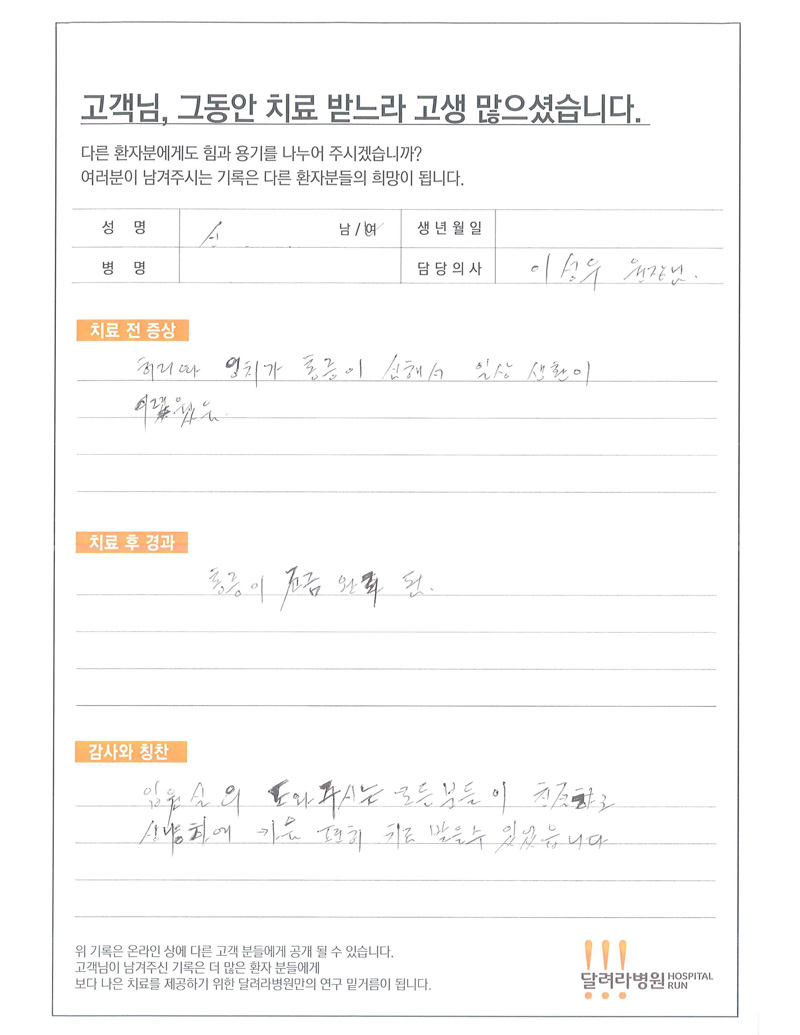 고객님, 그동안 치료 받느라 고생 많으셨습니다.
다른 환자분에게도 힘과 용기를 나누어 주시겠습니까?
여러분이 남겨주시는 기록은 다른 환자분들의 희망이 됩니다.
성 명 남 / 여 생 년 월 일
병 명 담 당 의 사 이성우 원장님.
치료 전 증상
허리와 엉치가 통증이 심해서 일상 생활이
어려웠음.
치료 후 경과
통증이 조금 완화 됨.
감사와 칭찬
입원실의 도와주시는 모든분들이 친절하고
상냥하여 마음 편히 치료 받을수 있었읍니다
위 기록은 온라인 상에 다른 고객 분들에게 공개 될 수 있습니다.
고객님이 남겨주신 기록은 더 많은 환자 분들에게
보다 나은 치료를 제공하기 위한 달려라병원만의 연구 밑거름이 됩니다.
달려라병원 HOSPITAL RUN